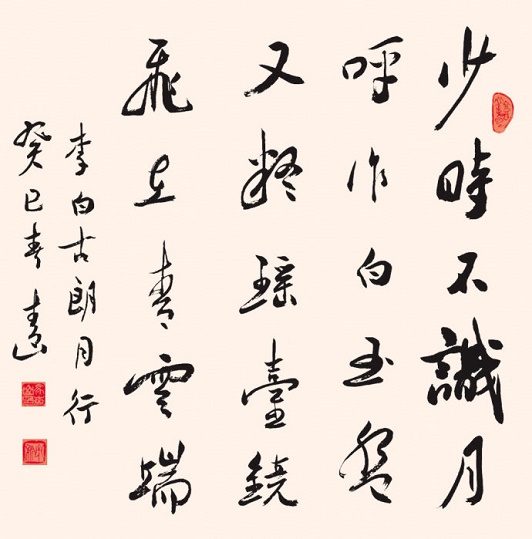 少時不識月
呼作白玉盤
又疑瑤臺鏡
飛在青雲端
李白古朗月行
癸巳春